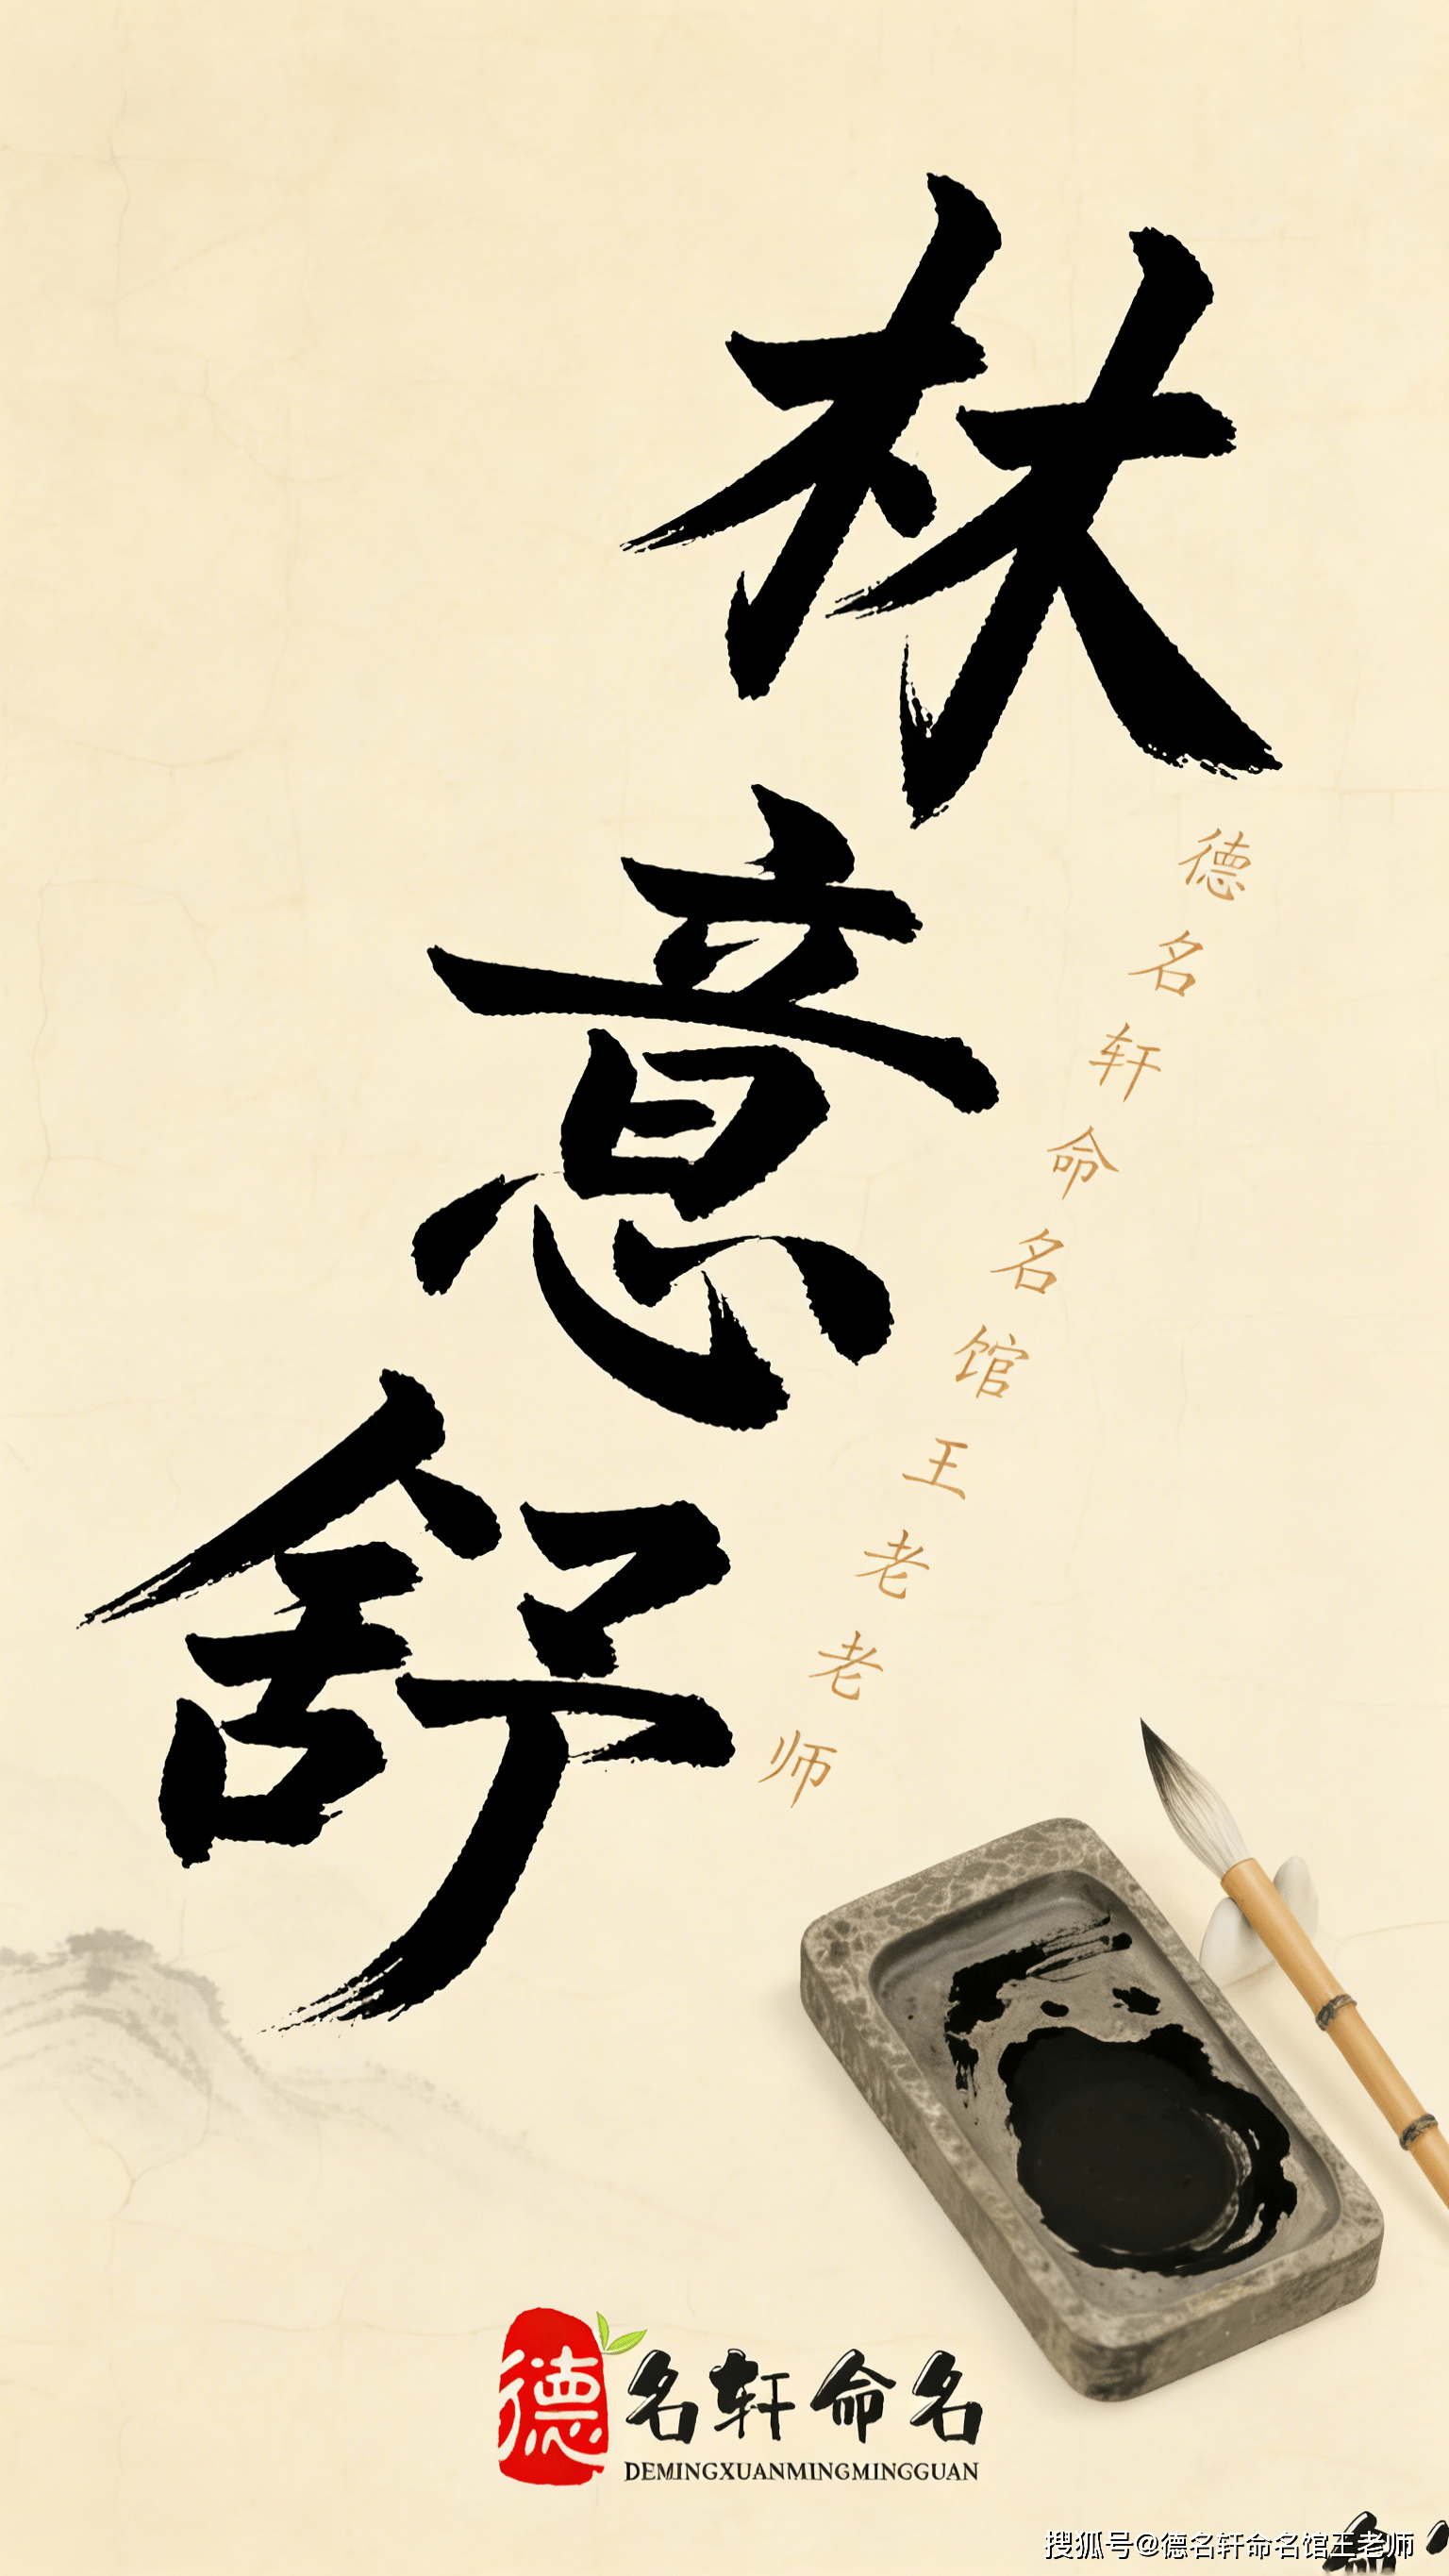 林意舒
德名轩命名馆王老老师
德名轩命名
DEMINGXUANMINGMINGGUAN
搜狐号@德名轩命名馆王老师